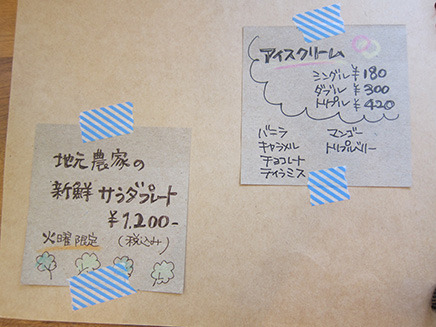 アイスクリーム
シングル ¥180
ダブル ¥300
トリプル ¥420
バニラ マンゴー
キャラメル トリプルベリー
チョコレート
ティラミス
地元農家の
新鮮サラダプレート
¥1,200-
火曜限定 (税込み)